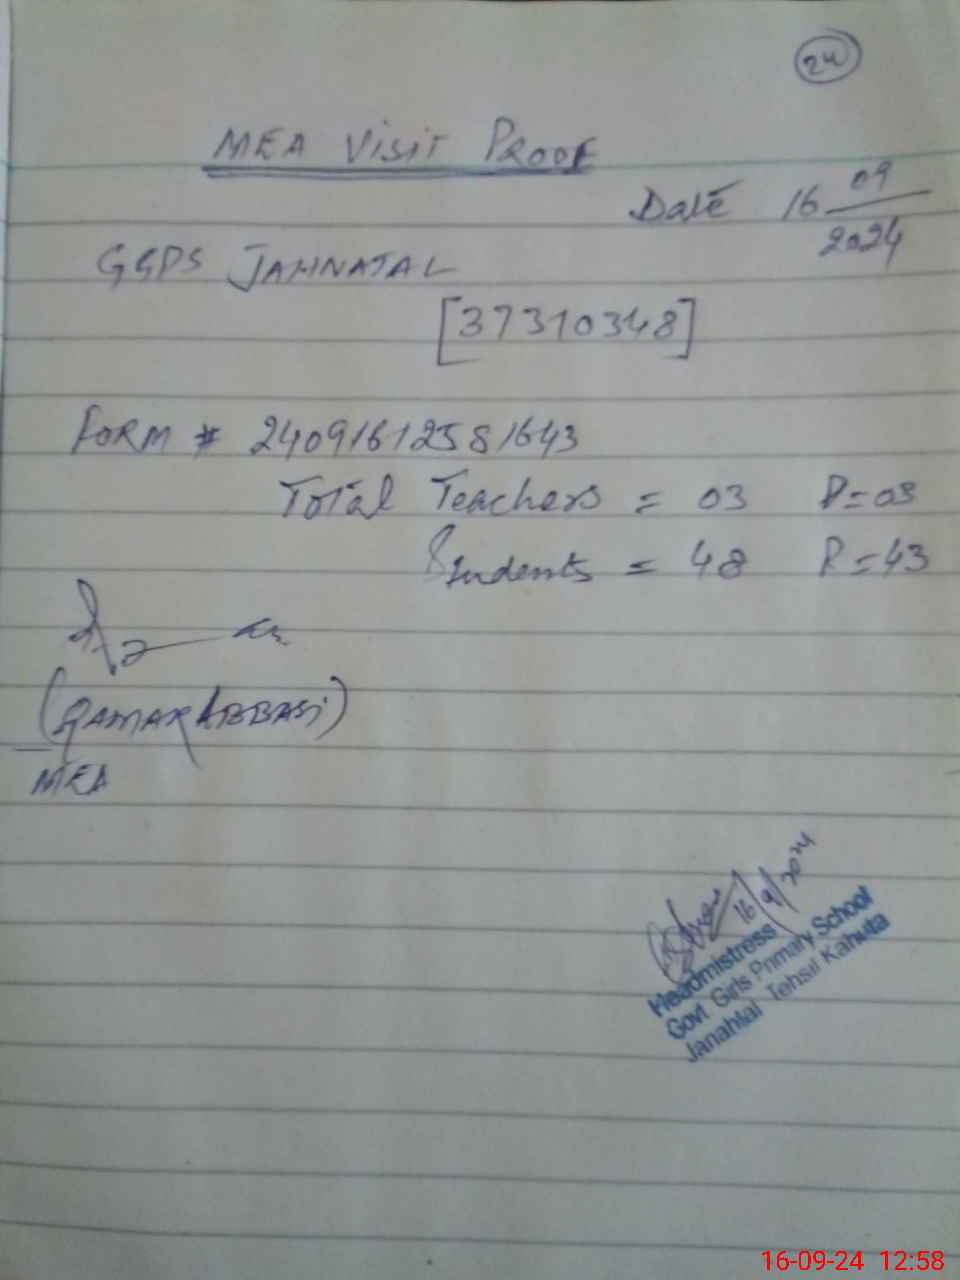 24
MEA Visit Proof
Date 16 09
2024
GGPS JAHNATAL
[37310348]
FORM # 24091612581643
Total Teachers = 03 P=03
Students = 48 P=43
(QAMAR ABBASi)
MEA
16/9/2024
Headmistress
Govt Girls Primary School
Janahtal Tehsil Kahuta
16-09-24 12:58